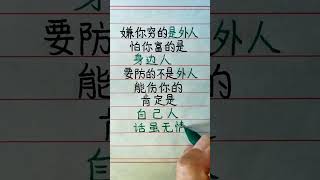 嫌你穷的是外人
怕你富的是
身边人
要防的不是外人
能伤你的
肯定是
自己人
话虽无情